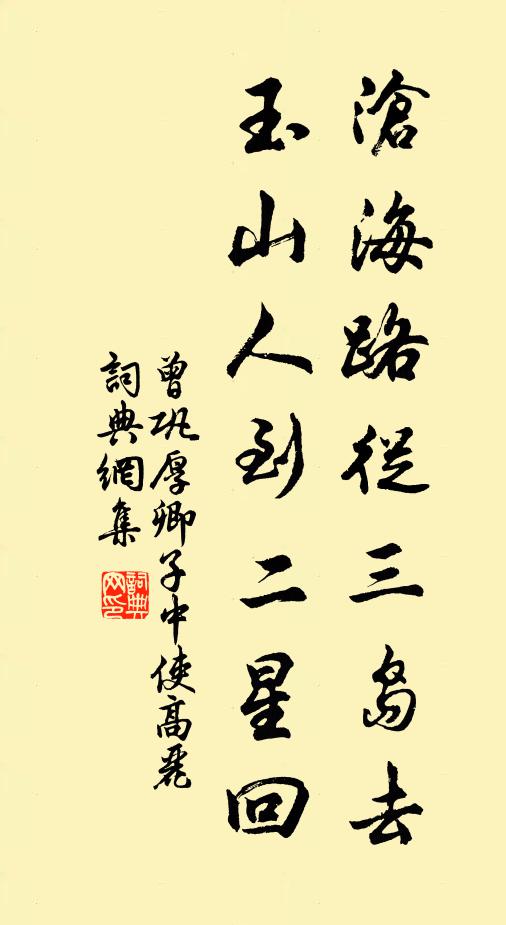 滄海路從三島去
玉山人到二星回
曾巩厚卿子中使高麗
詞典網集
詞典网印